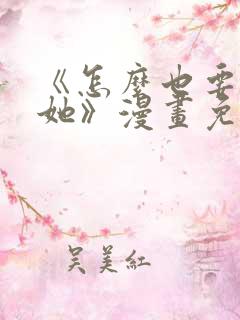 《怎麼也要
她》漫畫免
吳美紅